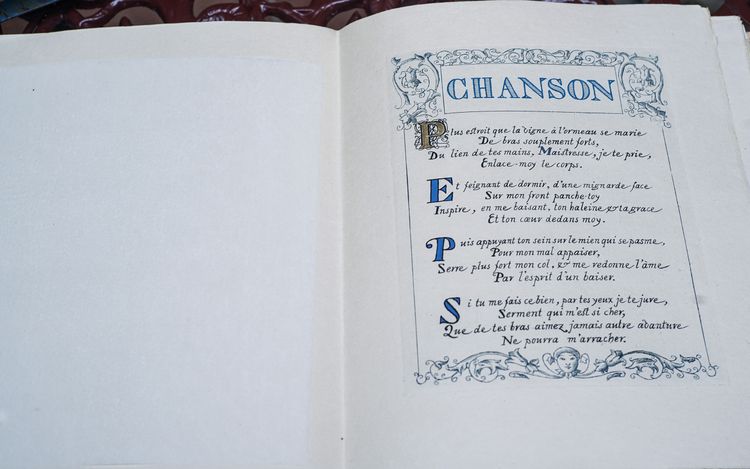 CHANSON
Plus estroit que la vigne à l'ormeau se marie
De bras souplement forts,
Du lien de tes mains, Maistresse, je te prie,
Enlace-moy le corps.
Et feignant de dormir, d'une mignarde face
Sur mon front panche-toy
Inspire, en me baisant, ton haleine & ta grace
Et ton cœur dedans moy.
Puis appuyant ton sein sur le mien qui se pasme,
Pour mon mal appaiser,
Serre plus fort mon col, & me redonne l'âme
Par l'esprit d'un baiser.
Si tu me fais ce bien, par tes yeux je te jure,
Serment qui m'est si cher,
Que de tes bras aimez jamais autre avanture
Ne pourra m'arracher.